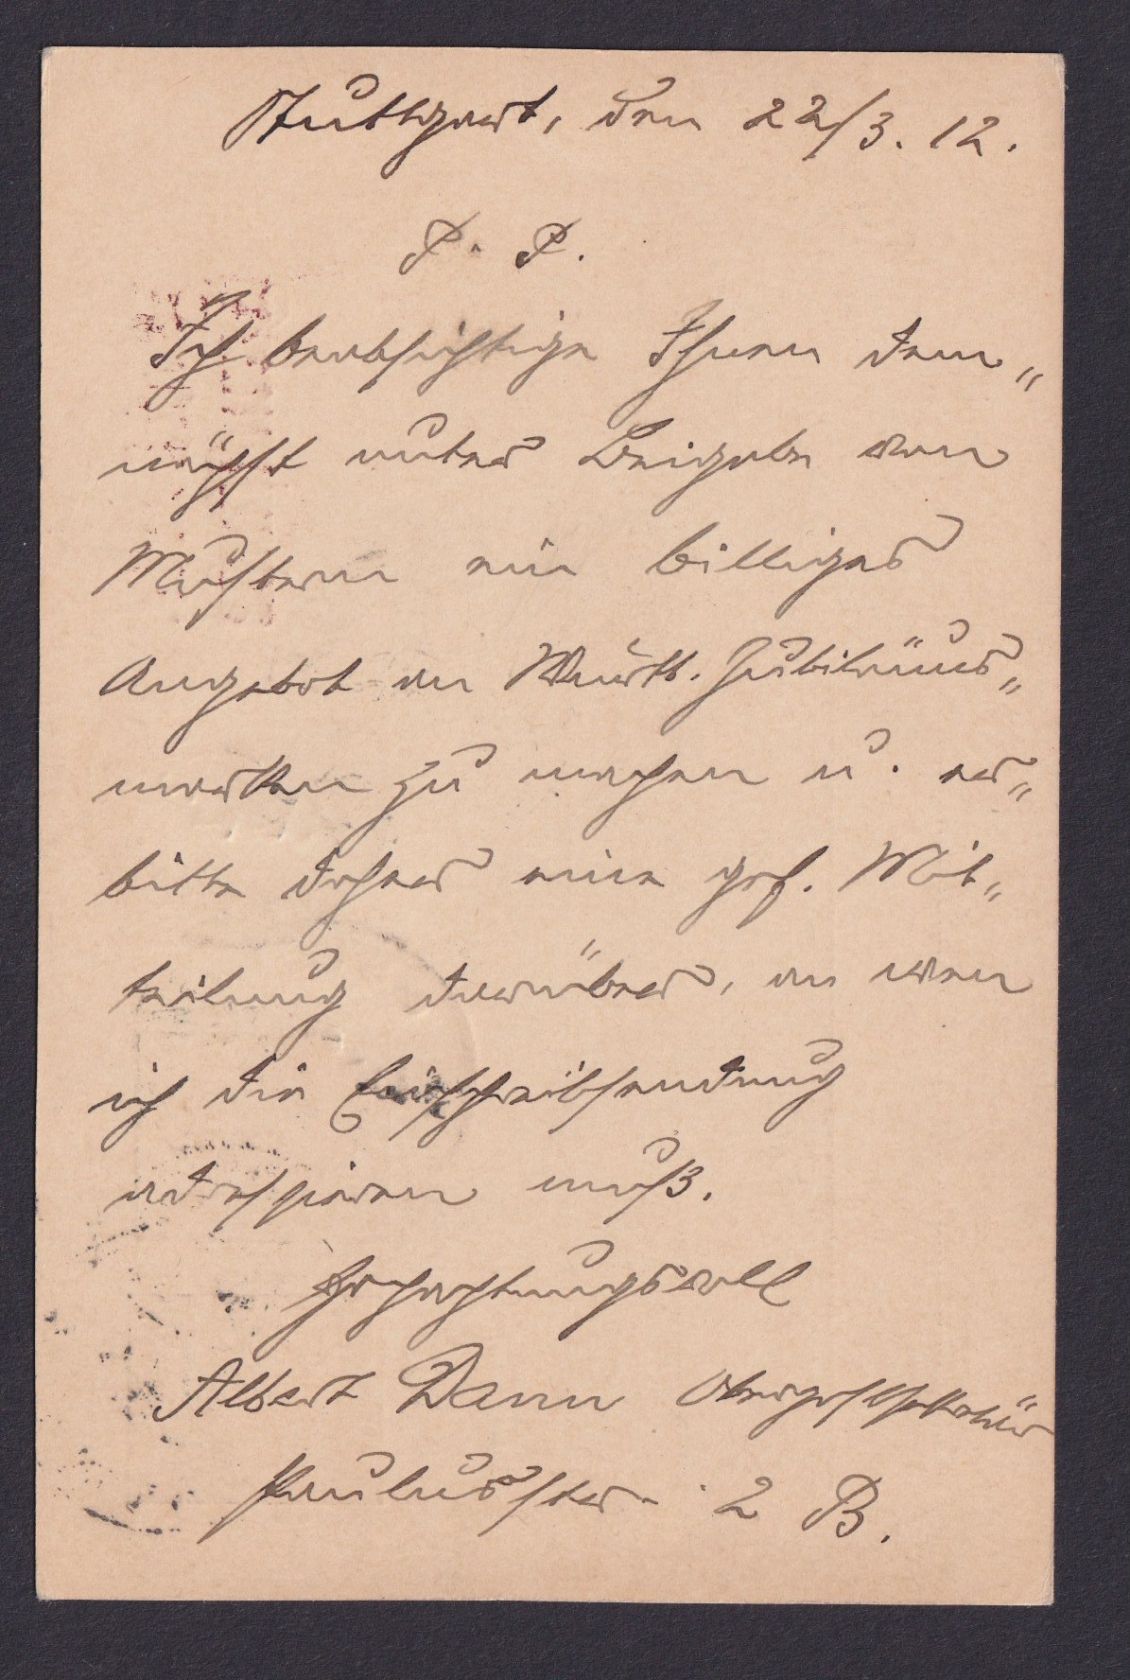 Stuttgart, den 22/3. 12.
P. P.
Ich beabsichtige Ihnen dem„
nächst unter Beigabe von
Mustern ein billiges
Angebot in Württ. Jubiläums„
marken zu machen u. er„
bitte daher eine gef. Mit„
teilung darüber, an wen
ich die Einschreibsendung
adressieren muß.
Hochachtungsvoll
Albert Dann Oberpostsekretär
Paulusstr. 2 B.